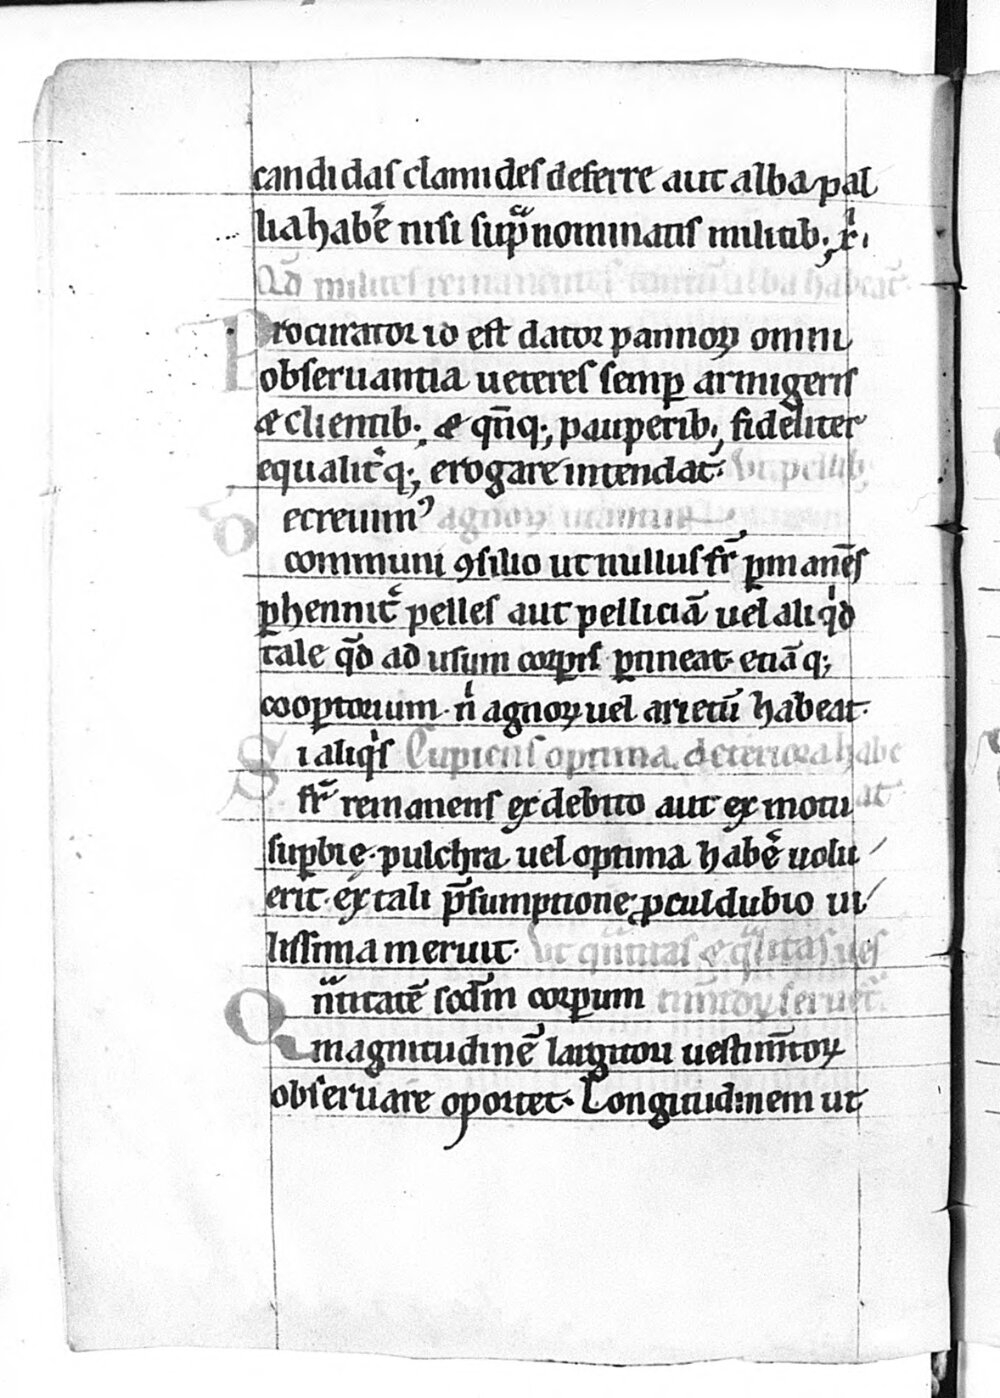 candidas clamides deferre aut alba pal
lia habe͛ nisi sup̲ᷓnominatis militib; xͥ.
Qd̄ milites remanentes tantū alba habeāt.
Procurator id est dator pannoꝝ omni
obseruantia ueteres semꝑ armigeris
& clientib; & qn̄q; pauperib; fideliter
equalit͛q; erogare intendat. Vt pellib;
Decreuimꝰ agnoꝝ utantur
communi ꝯsilio ut nullus fr̄ ꝑmanēs
ꝑhennit͛ pelles aut pelliciā uel aliqͥd
tale qd̄ ad usum corꝑis ꝑtineat etiā q;
cooptorium nͥ agnoꝝ uel arietū habeat.
Si aliqͥs Cupiens optima deteriora habe
fr̄ remanens ex debito aut ex motu at
suꝑbie. pulchra uel optima habe͛ uolu
erit. ex tali p̄sumptione ꝓculdubio ui
lissima meruit. Vt qᷓntitas & qᷓlitas ues
Qᷓntitatē sc̄dm corꝑum timt̄oꝝ seruet᷑.
magnitudinē largitori uestimt̄oꝝ
obseruare oportet. Longitudinem ut